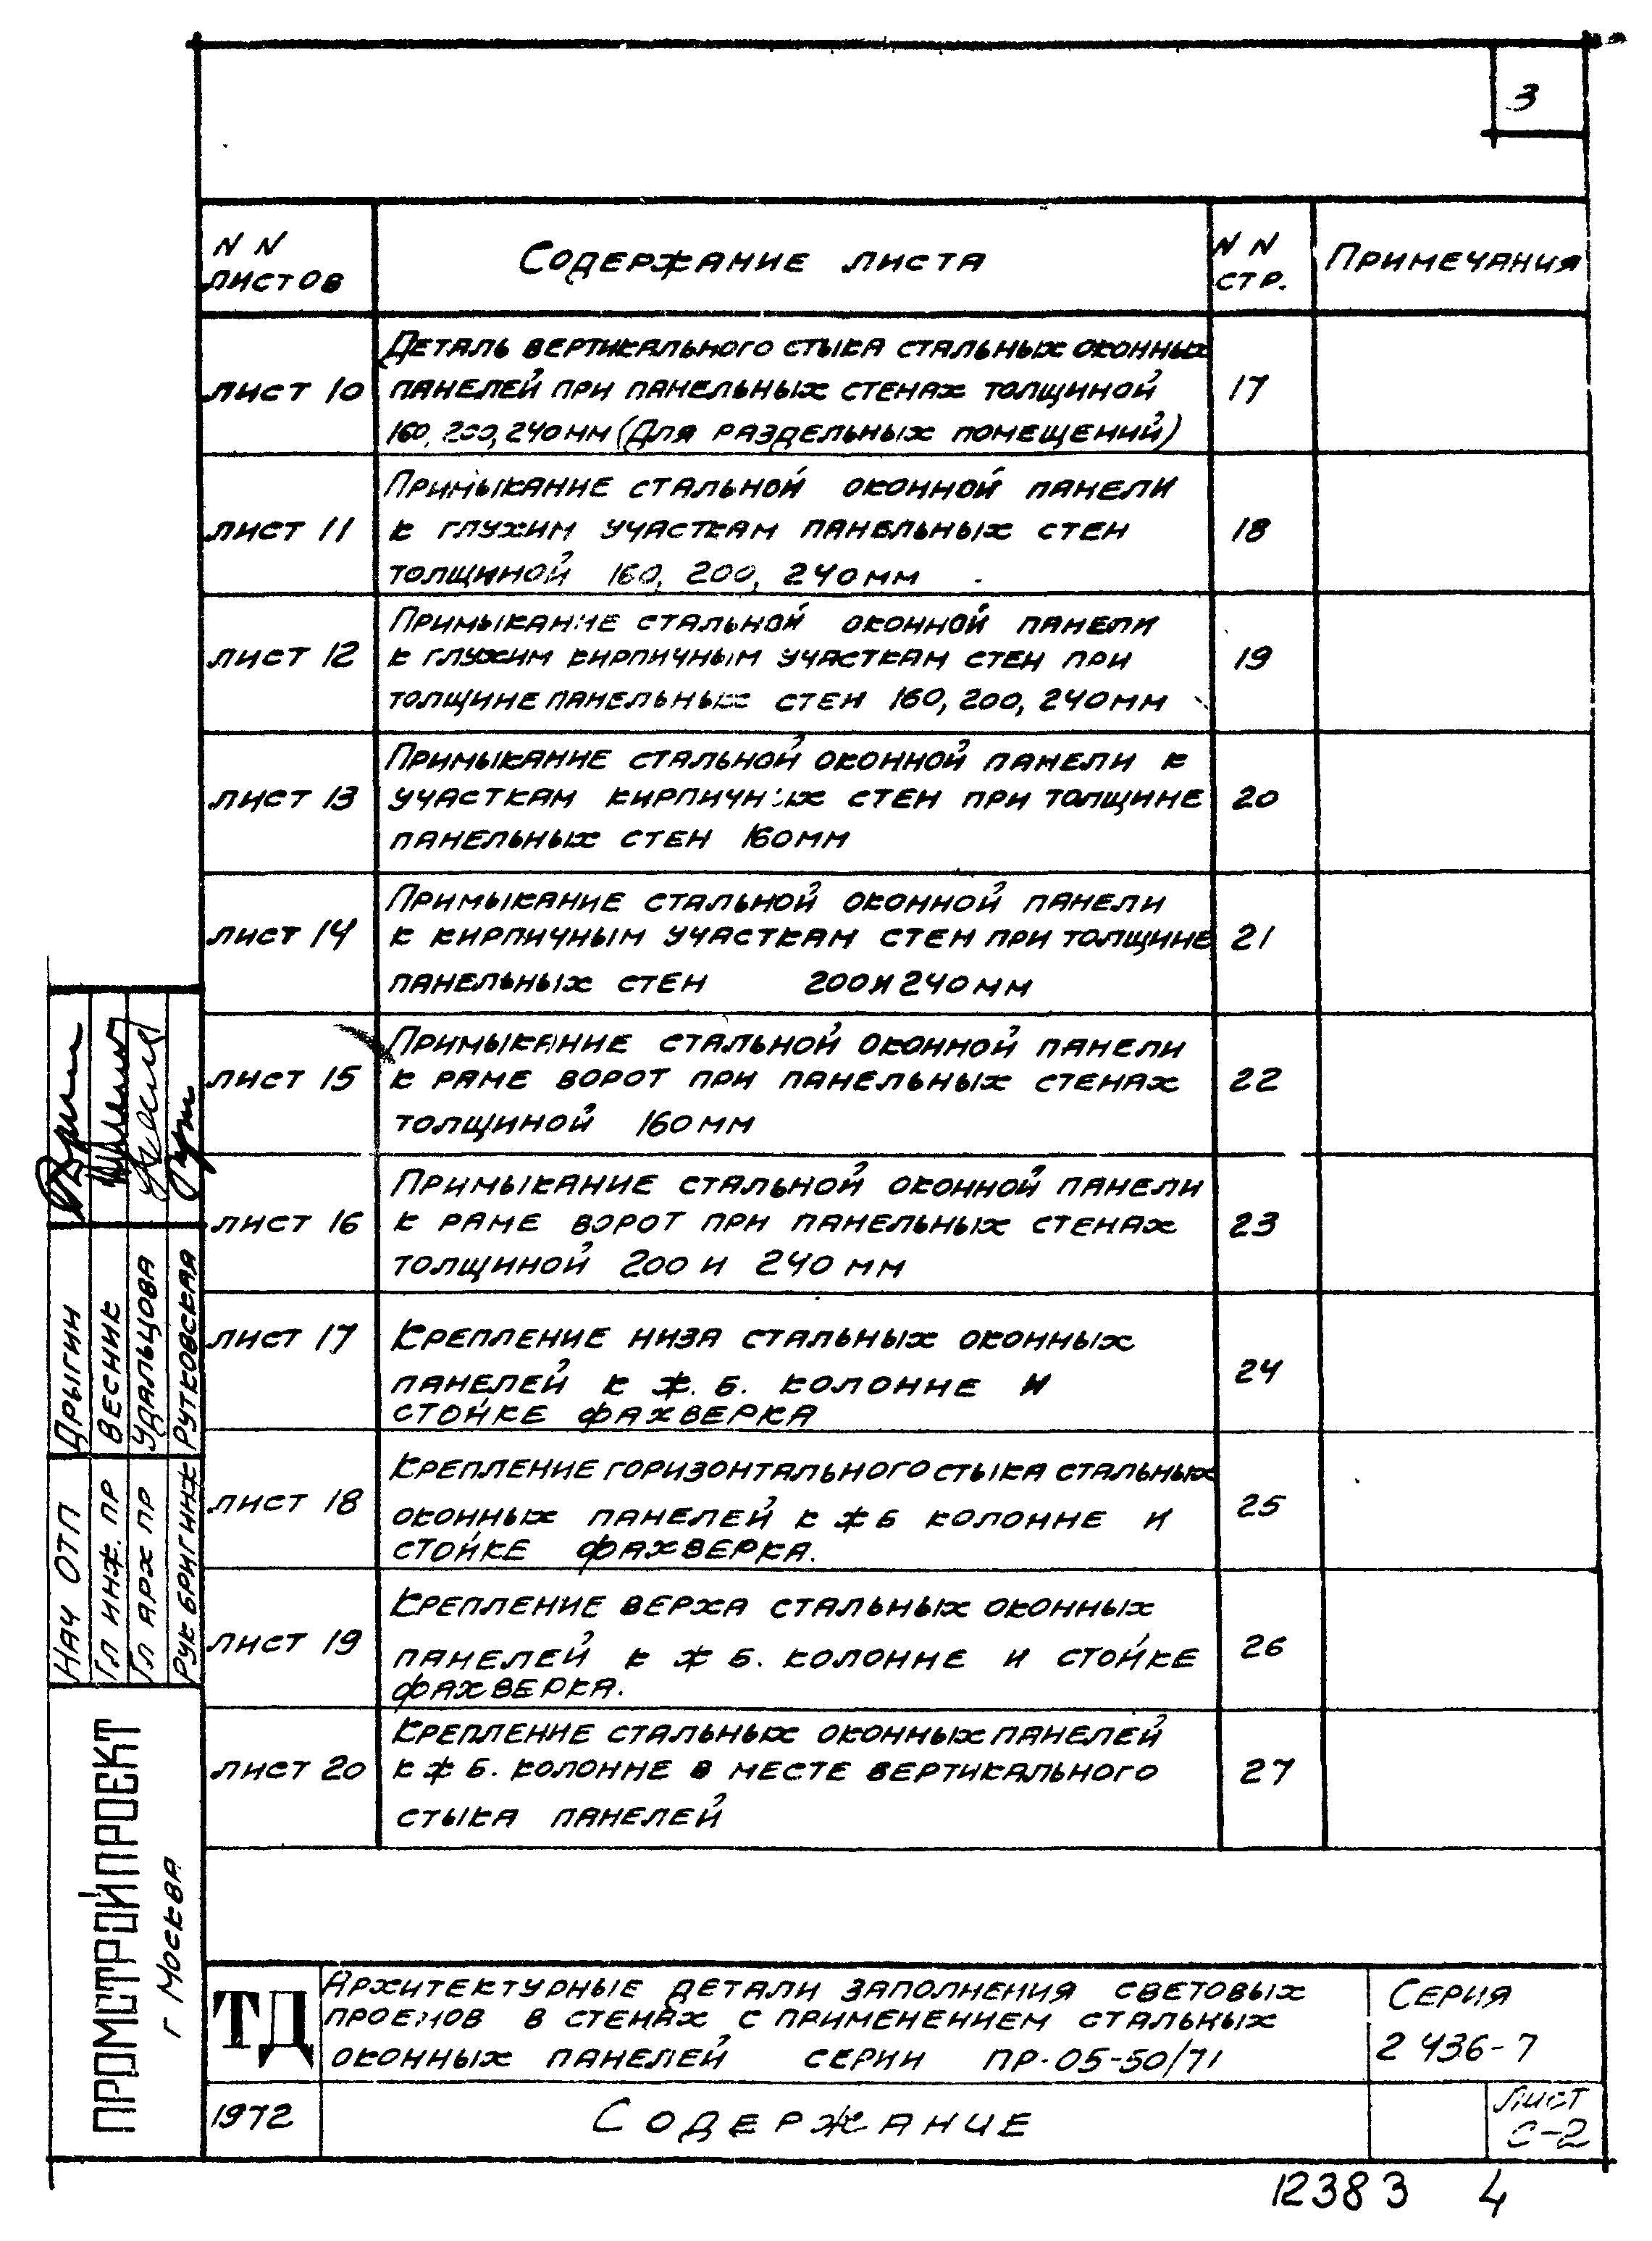 3
N N
листов
Содержание листа
N N
стр.
Примечания
лист 10
Деталь вертикального стыка стальных оконных
панелей при панельных стенах толщиной
160, 200, 240 мм (Для раздельных помещений)
17
лист 11
Примыкание стальной оконной панели
к глухим участкам панельных стен
толщиной 160, 200, 240 мм
18
лист 12
Примыкание стальной оконной панели
к глухим кирпичным участкам стен при
толщине панельных стен 160, 200, 240 мм
19
лист 13
Примыкание стальной оконной панели к
участкам кирпичных стен при толщине
панельных стен 160 мм
20
лист 14
Примыкание стальной оконной панели
к кирпичным участкам стен при толщине
панельных стен 200 и 240 мм
21
лист 15
Примыкание стальной оконной панели
к раме ворот при панельных стенах
толщиной 160 мм
22
лист 16
Примыкание стальной оконной панели
к раме ворот при панельных стенах
толщиной 200 и 240 мм
23
лист 17
Крепление низа стальных оконных
панелей к ж. б. колонне и
стойке фахверка
24
лист 18
Крепление горизонтального стыка стальных
оконных панелей к ж б колонне и
стойке фахверка.
25
лист 19
Крепление верха стальных оконных
панелей к ж б. колонне и стойке
фахверка.
26
лист 20
Крепление стальных оконных панелей
к ж б. колонне в месте вертикального
стыка панелей
27
Нач ОТП Дрыгин
Гл инж. пр Весник
Гл арх пр Удальцова
Рук бриг инж Рутковская
ПРОМСТРОЙПРОЕКТ
г Москва
ТД
Архитектурные детали заполнения световых
проемов в стенах с применением стальных
оконных панелей серии ПР-05-50/71
Серия
2 436-7
1972
Содержание
Лист
С-2
12383 4